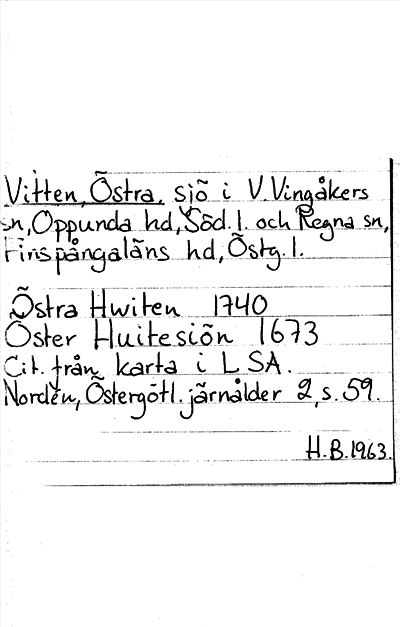 Vitten, Östra, sjö i V. Vingåkers
sn, Oppunda hd, Söd. l. och Regna sn,
Finspångaläns hd, Östg. l.
Östra Hwiten 1740
Öster Huitesiön 1673
Cit. från karta i LSA.
Nordén, Östergötl. järnålder 2, s. 59.
H.B. 1963.